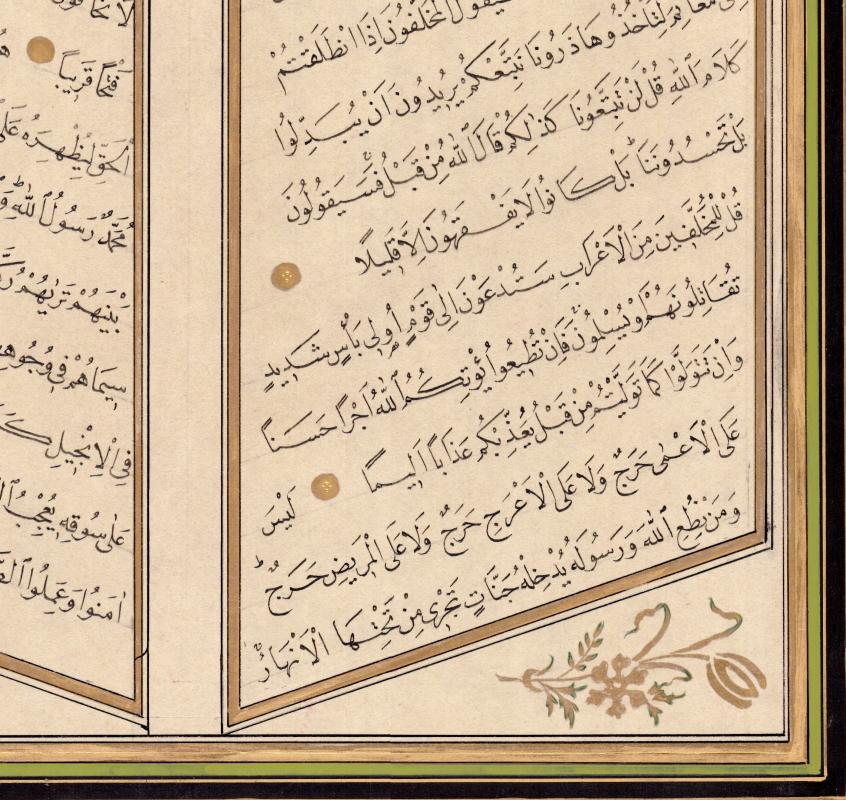 سَيَقُولُ الْمُخَلَّفُونَ اِذَا انْطَلَقْتُمْ
اِلٰى مَغَانِمَ لِتَاْخُذُوهَا ذَرُونَا نَتَّبِعْكُمْ يُرِيدُونَ اَنْ يُبَدِّلُوا
كَلَامَ اللّٰهِ قُلْ لَنْ تَتَّبِعُونَا كَذٰلِكُمْ قَالَ اللّٰهُ مِنْ قَبْلُ فَسَيَقُولُونَ
بَلْ تَحْسُدُونَنَا بَلْ كَانُوا لَا يَفْقَهُونَ اِلَّا قَلِيلًا
قُلْ لِلْمُخَلَّفِينَ مِنَ الْاَعْرَابِ سَتُدْعَوْنَ اِلٰى قَوْمٍ اُولِى بَاْسٍ شَدِيدٍ
تُقَاتِلُونَهُمْ اَوْ يُسْلِمُونَ فَاِنْ تُطِيعُوا يُؤْتِكُمُ اللّٰهُ اَجْرًا حَسَنًا
وَاِنْ تَتَوَلَّوْا كَمَا تَوَلَّيْتُمْ مِنْ قَبْلُ يُعَذِّبْكُمْ عَذَابًا اَلِيمًا لَيْسَ
عَلَى الْاَعْمٰى حَرَجٌ وَلَا عَلَى الْاَعْرَجِ حَرَجٌ وَلَا عَلَى الْمَرِيضِ حَرَجٌ
وَمَنْ يُطِعِ اللّٰهَ وَرَسُولَهُ يُدْخِلْهُ جَنَّاتٍ تَجْرِى مِنْ تَحْتِهَا الْاَنْهَارُ
لَا تَخَافُونَ
فَتْحًا قَرِيبًا
الْحَقِّ لِيُظْهِرَهُ عَلَى
مُحَمَّدٌ رَسُولُ اللّٰهِ
بَيْنَهُمْ تَرٰيهُمْ
سِيمَاهُمْ فِى
فِى الْاِنْجِيلِ
عَلٰى سُوقِهِ يُعْجِبُ
اٰمَنُوا وَعَمِلُوا